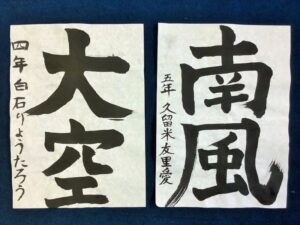 南風
五年 久留米友里愛
大空
四年 白石りょうたろう